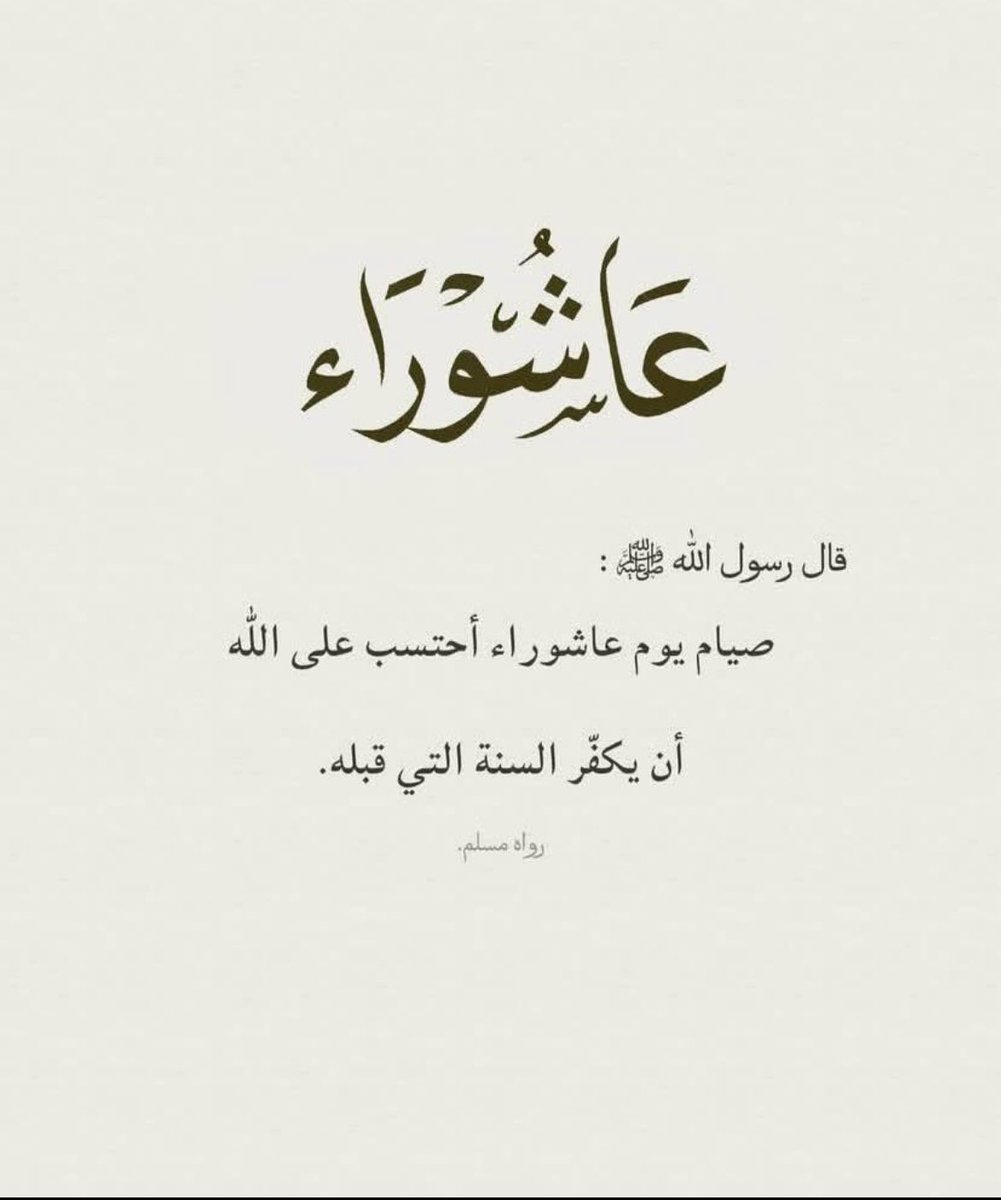 عَاشُوْرَاء
قال رسول الله ﷺ :
صيام يوم عاشوراء أحتسب على الله
أن يكفّر السنة التي قبله.
رواه مسلم.